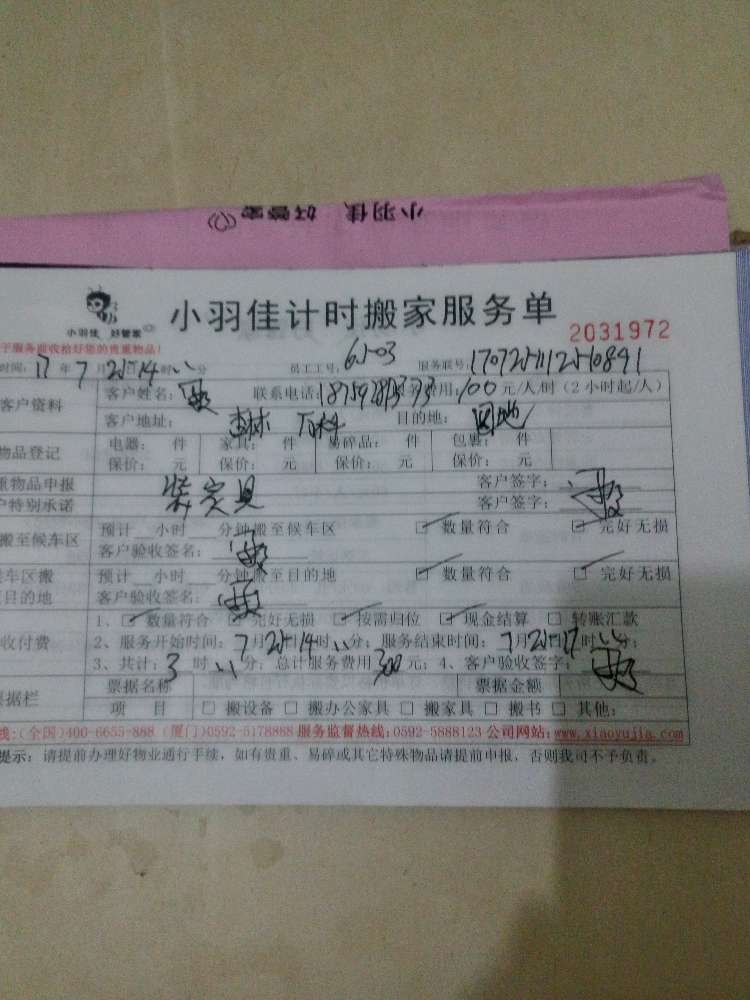 小羽佳 好管家
小羽佳 好管家
小羽佳计时搬家服务单
2031972
于服务前收拾好您的贵重物品!
时间: 17 年 7 月 25 日 14 时 分 员工工号: 6503 服务联号:
客户资料 客户姓名: 联系电话: 费用: 100 元/人/时(2小时起/人)
客户地址: 万科 目的地: 因地
物品登记 电器: 件 家具: 件 易碎品: 件 包裹: 件
保价: 元 保价: 元 保价: 元 保价: 元
重物品申报 客户签字:
户特别承诺 客户签字:
搬至候车区 预计 小时 分钟搬至候车区 ☑ 数量符合 ☑ 完好无损
客户验收签名:
车区搬 预计 小时 分钟搬至目的地 ☑ 数量符合 ☑ 完好无损
目的地 客户验收签名:
1、☑ 数量符合 ☑ 完好无损 ☑ 按需归位 ☑ 现金结算 □ 转账汇款
收付费 2、服务开始时间: 7 月 25 日 14 时 分; 服务结束时间: 7 月 25 日 17 时 分;
3、共计: 3 时 分; 总计服务费用 300 元; 4、客户验收签字:
票据栏 票据名称 票据金额
项 目 □ 搬设备 □ 搬办公家具 □ 搬家具 □ 搬书 □ 其他:
线:(全国)400-6655-888 (厦门)0592-5178888 服务监督热线:0592-5888123 公司网站:www.xiaoyujia.com
提示: 请提前办理好物业通行手续, 如有贵重、易碎或其它特殊物品请提前申报, 否则我司不予负责。